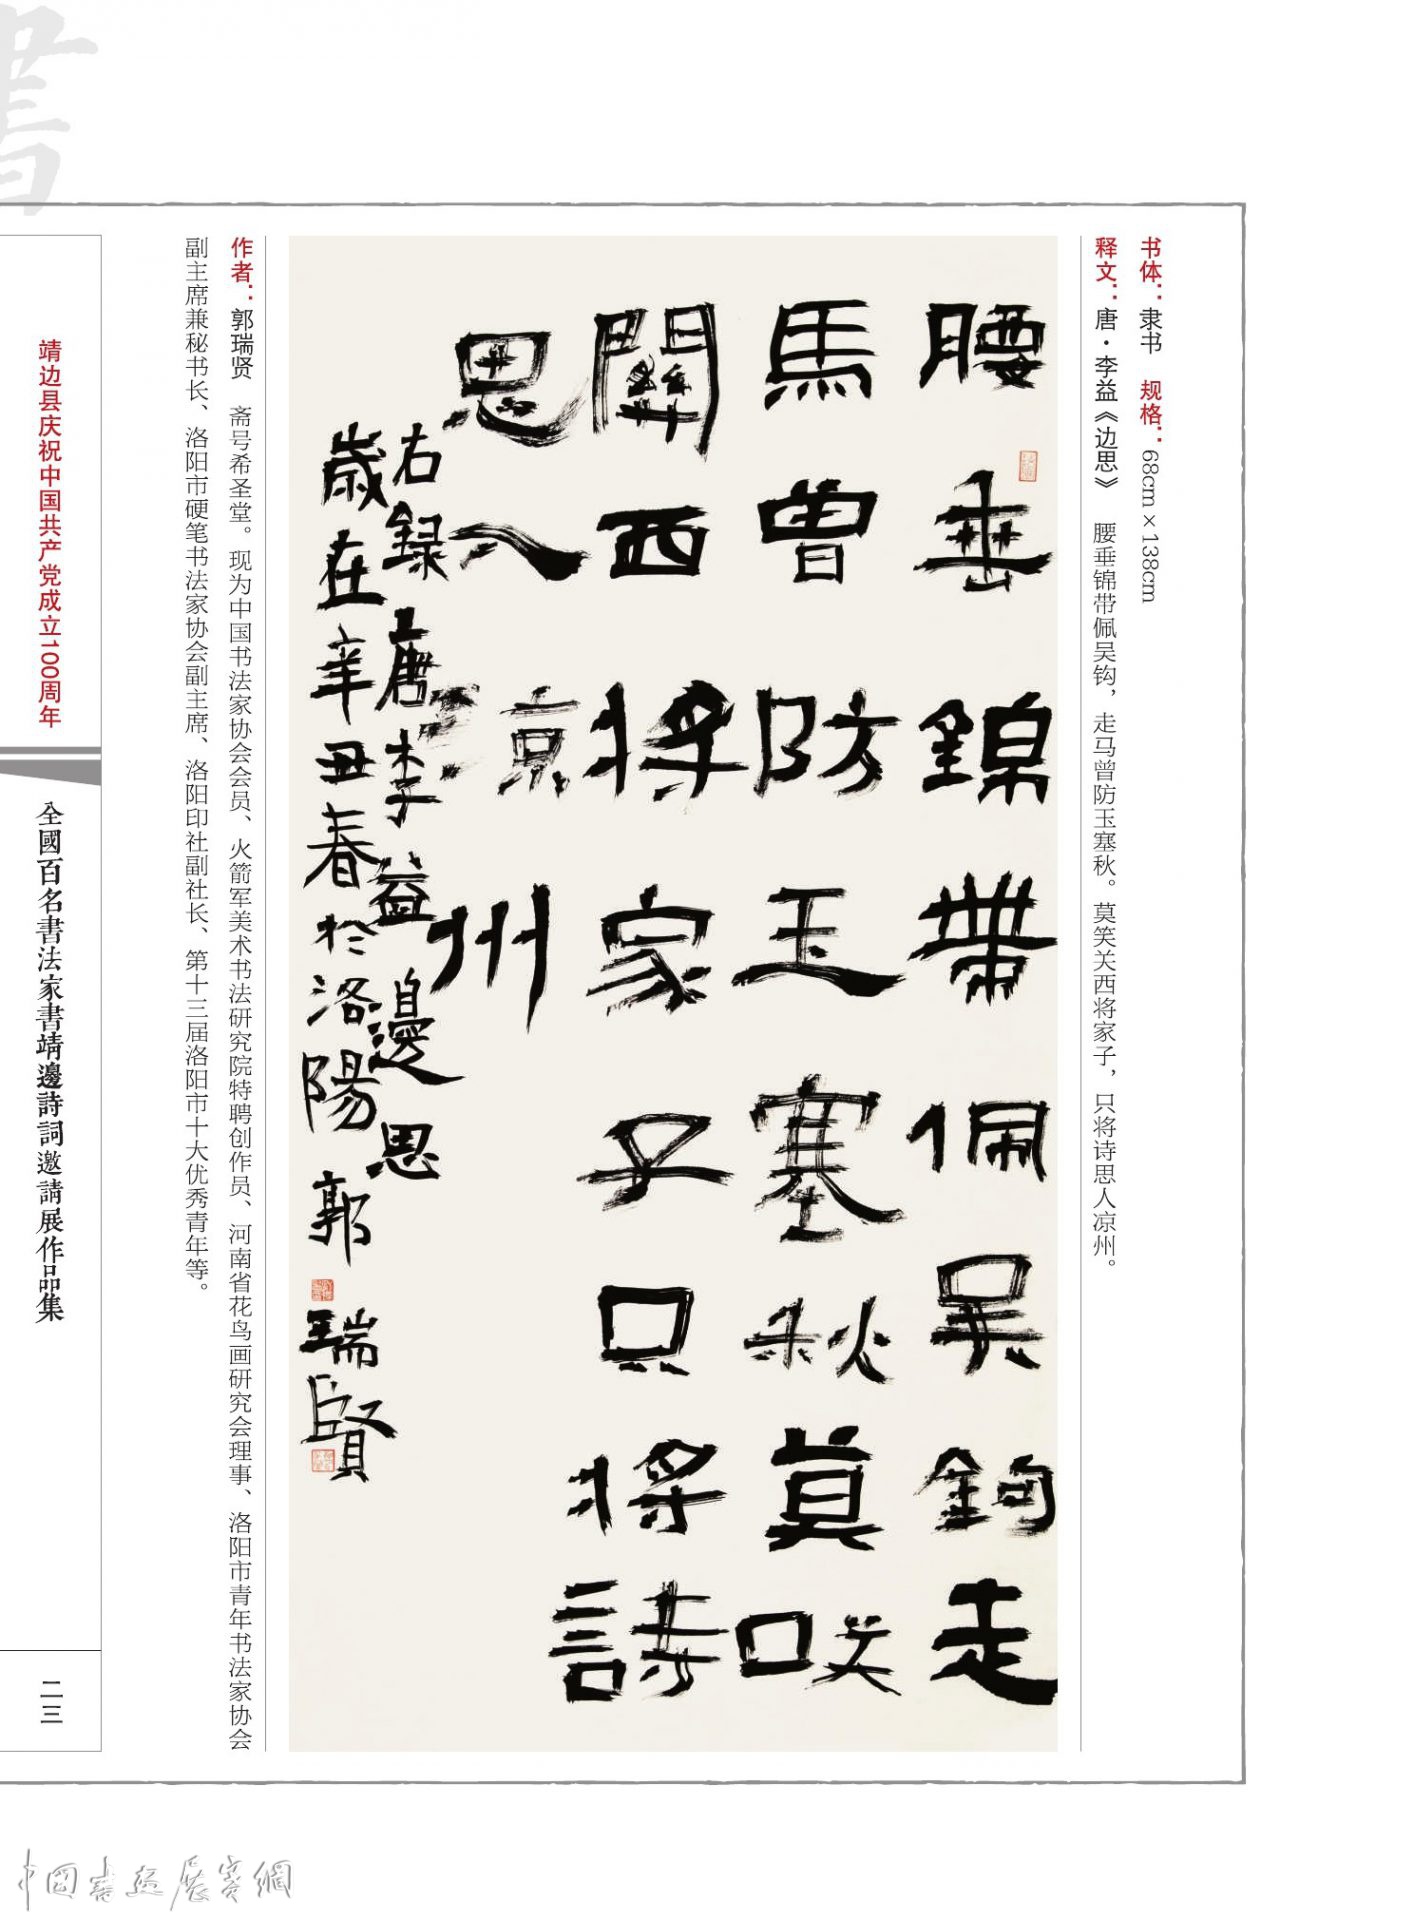 书体：隶书 规格：68cm×138cm
释文：唐·李益《边思》 腰垂锦带佩吴钩，走马曾防玉塞秋。莫笑关西将家子，只将诗思人凉州。
腰垂錦帶佩吳鉤走
馬曾防玉塞秋莫咲
關西將家子只將詩
思入涼州
右録唐李益邊思
歲在辛丑春於洛陽郭瑞賢
作者：郭瑞贤 斋号希圣堂。现为中国书法家协会会员、火箭军美术书法研究院特聘创作员、河南省花鸟画研究会理事、洛阳市青年书法家协会
副主席兼秘书长、洛阳市硬笔书法家协会副主席、洛阳印社副社长、第十三届洛阳市十大优秀青年等。
書
靖边县庆祝中国共产党成立100周年
全國百名書法家書靖邊詩詞邀請展作品集
二三
中國書画展賽網